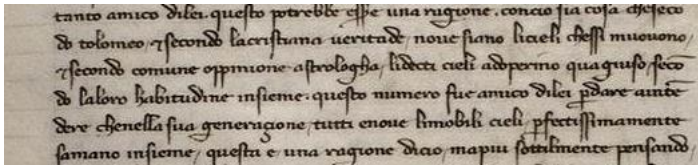 tanto amico dilei. questo potrebbe esse una ragione. concio sia cosa cheseco
do tolomeo, ⁊secondo lacristiana veritade, nove siano licieli chessi muovono,
⁊secondo comune oppinione astrologha, lidecti cieli adoperino qua giuso, seco
do laloro habitudine insieme. questo numero fue amico dilei pdare ainte
dere chenella sua generaçione, tutti enove limobili cieli, pfectissimamente
samano insieme, questa e una ragione dicio, mapiu sottilmente pensando